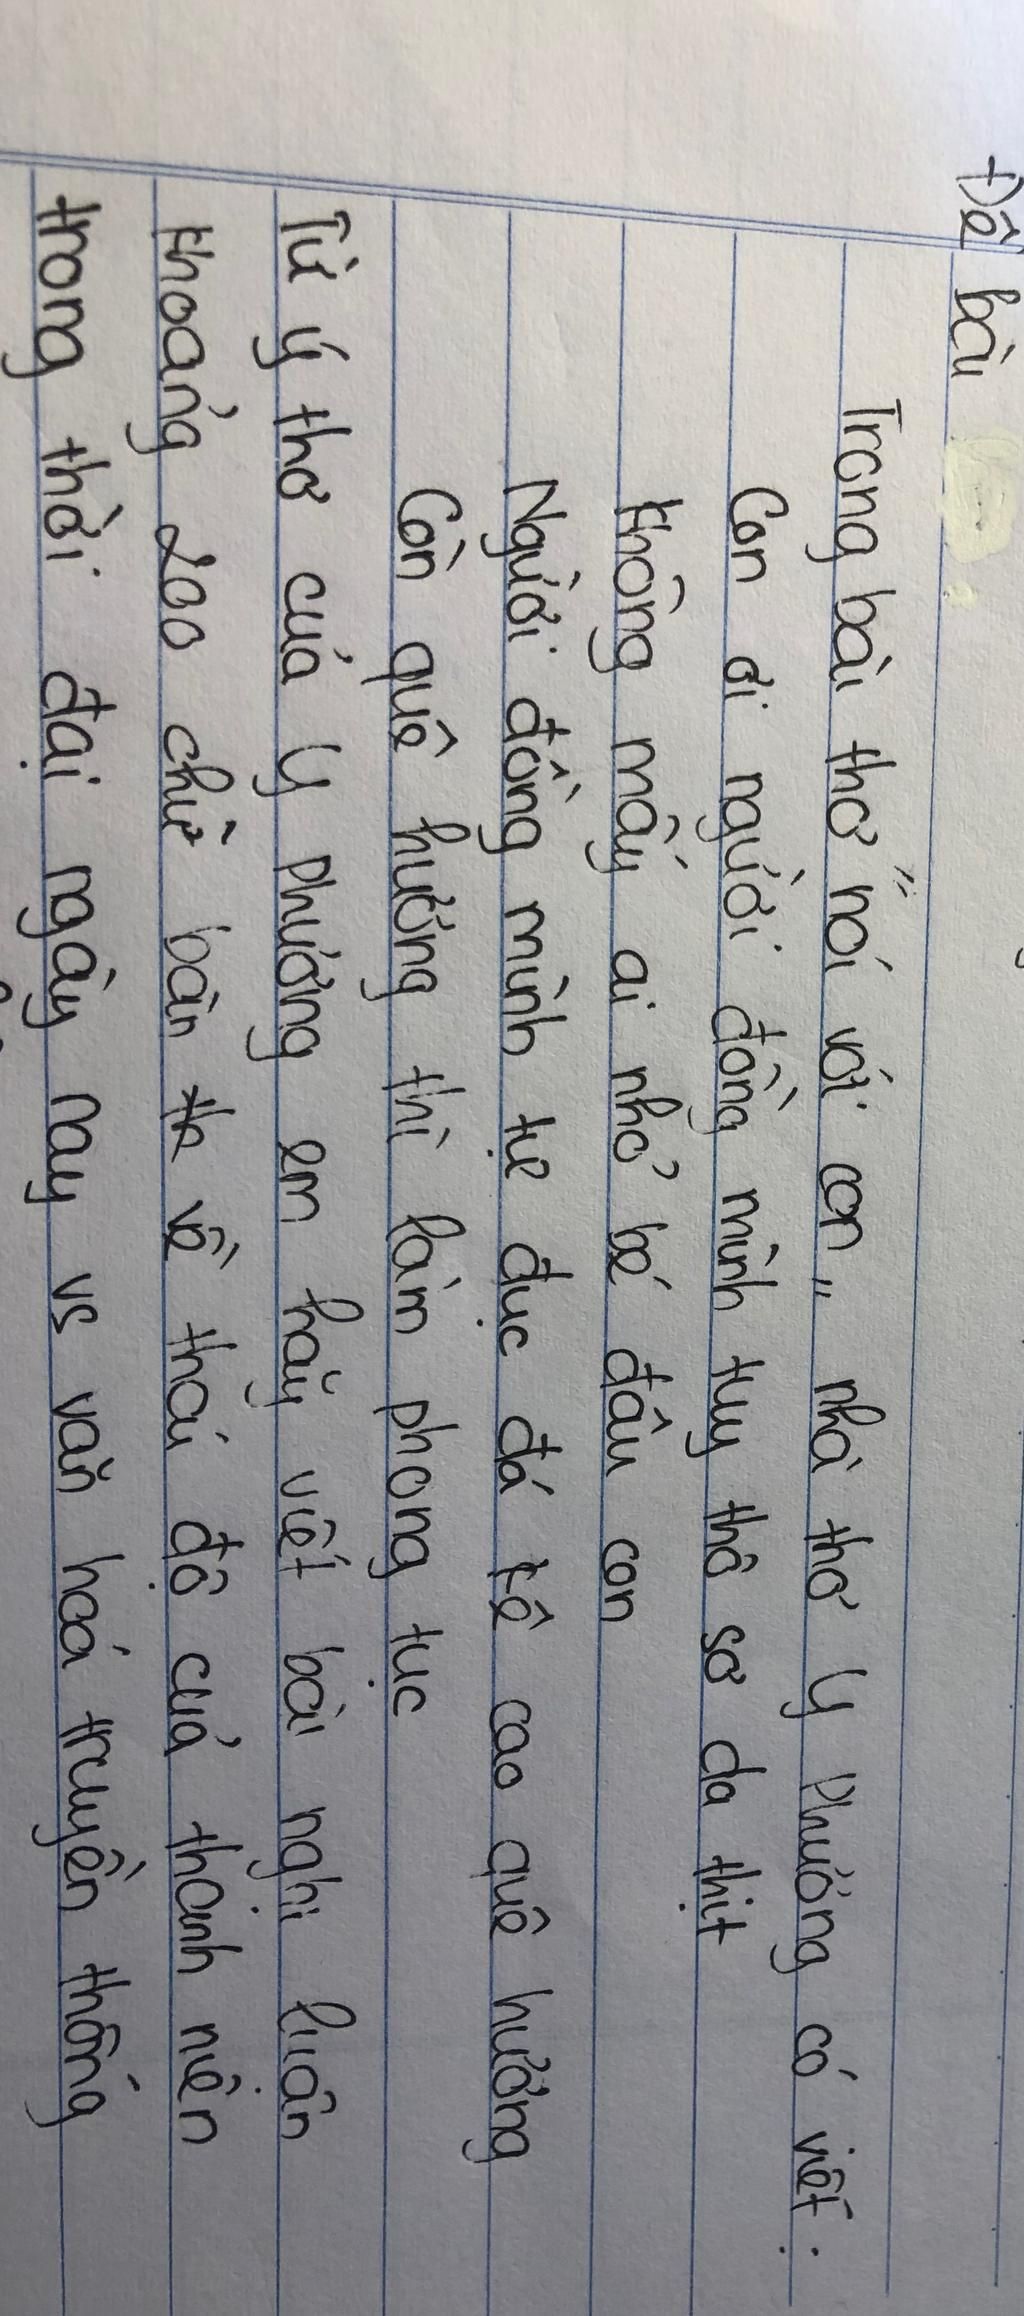 Đề bài
Trong bài thơ "nói với con" nhà thơ Y Phương có viết:
Con ơi người đồng mình tuy thô sơ da thịt
Không mấy ai nhỏ bé đâu con
Người đồng mình tự đục đá kê cao quê hương
Còn quê hương thì làm phong tục
Từ ý thơ của Y Phương em hãy viết bài nghị luận
khoảng 200 chữ bàn về thái độ của thanh niên
trong thời đại ngày nay vs văn hoá truyền thống